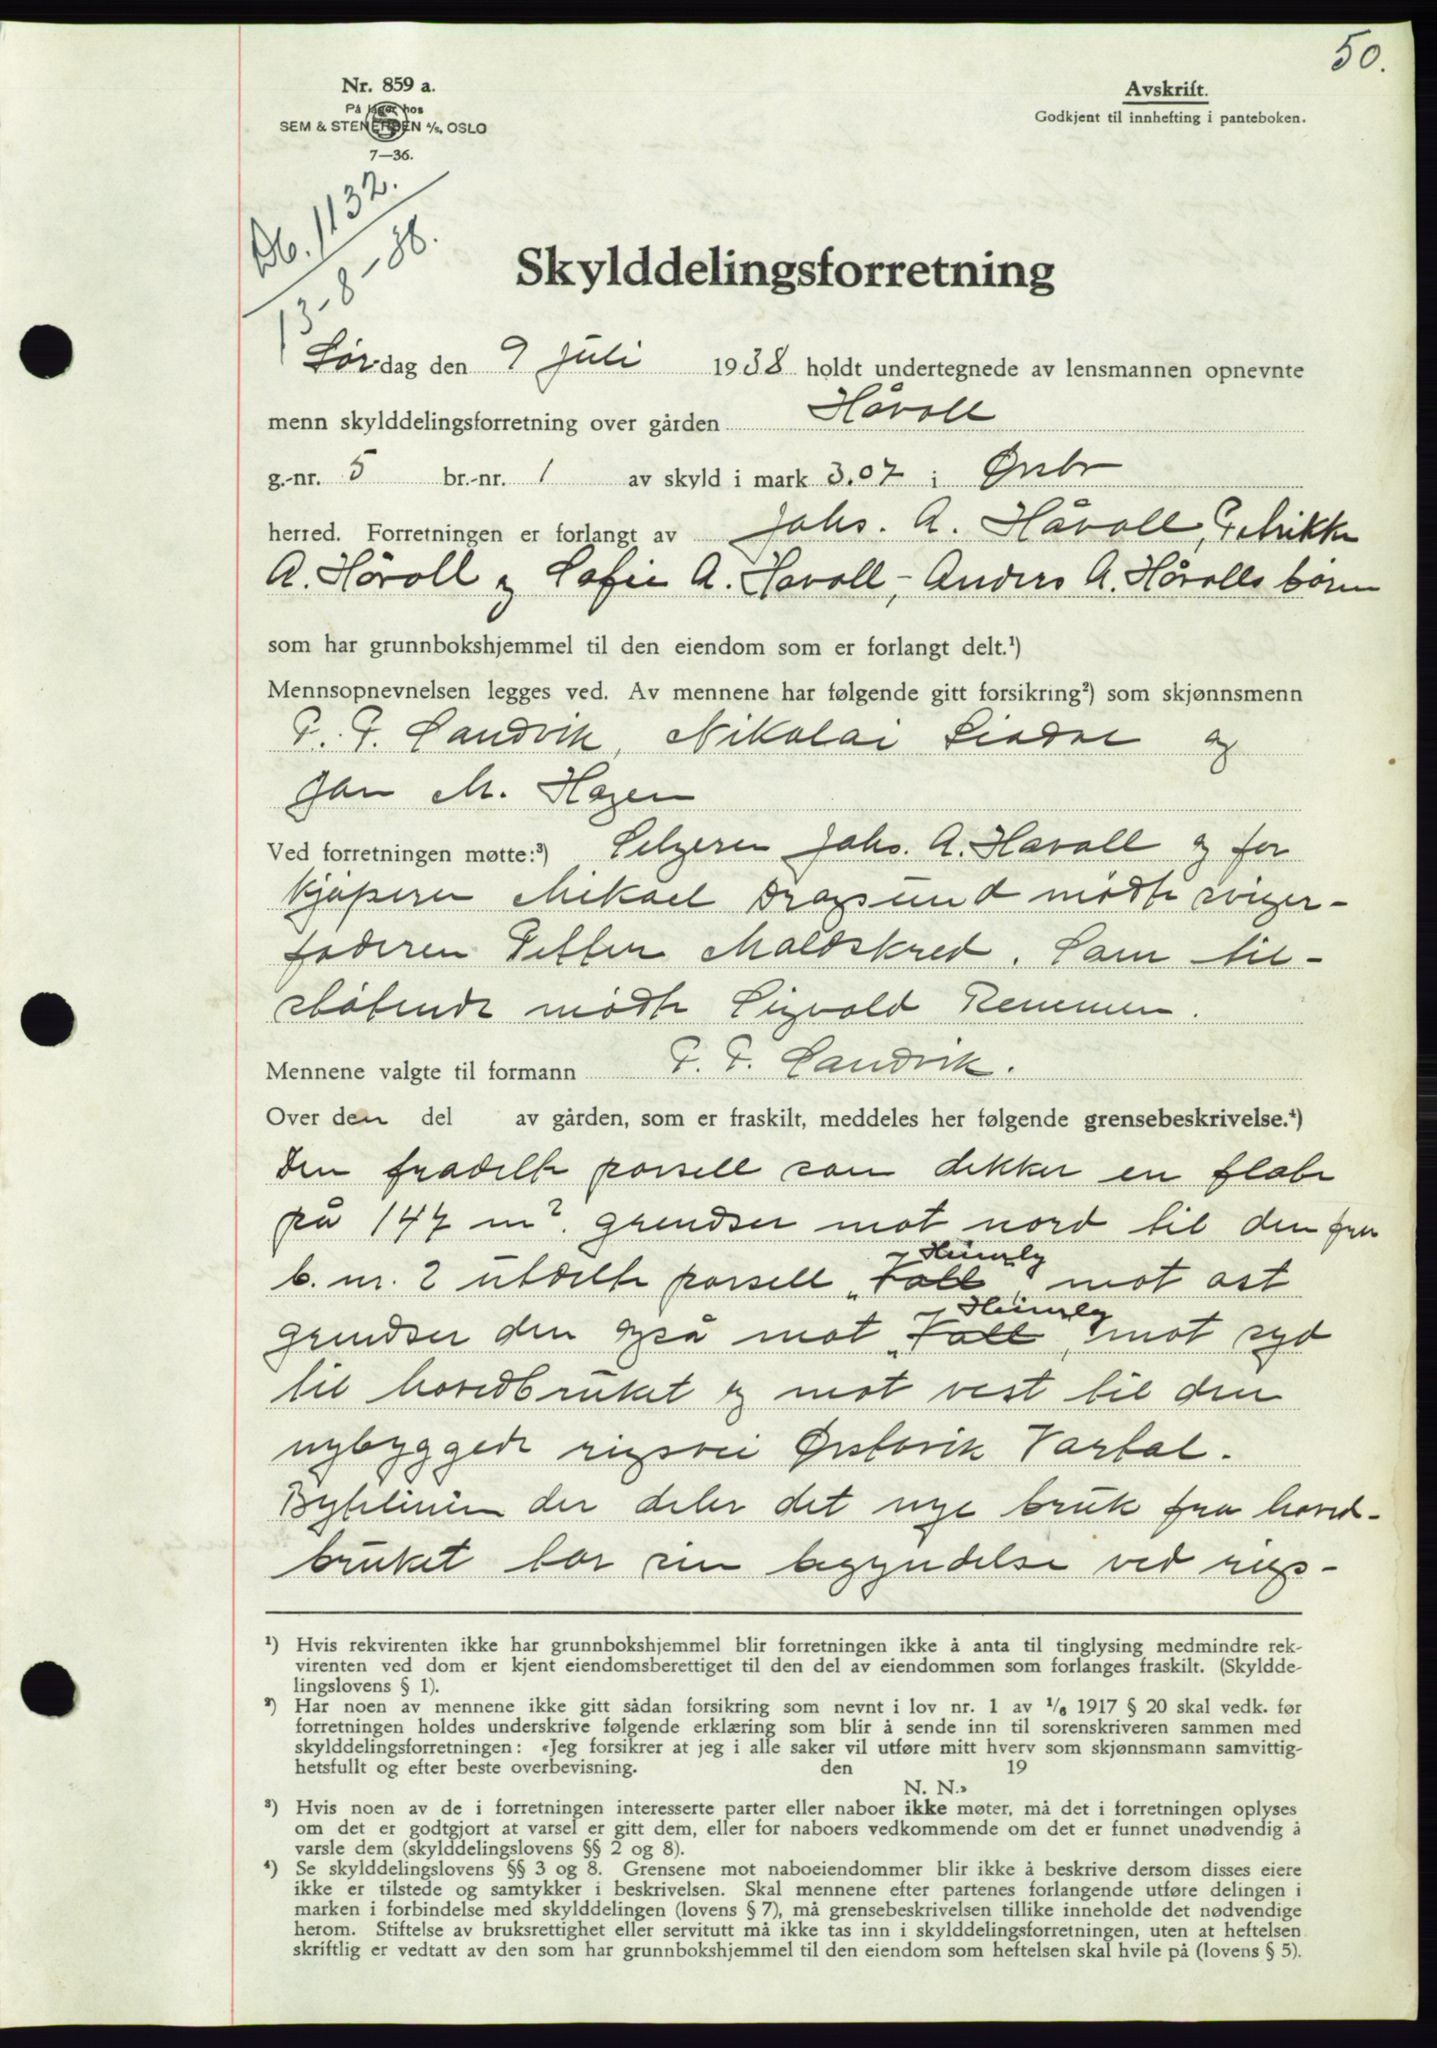 50.
Nr. 859 a.
På lager hos
SEM & STENERSEN A/S, OSLO
7—36.
Avskrift.
Godkjent til innhefting i panteboken.
Db. 1132.
13-8-38.
Skylddelingsforretning
Lørdag den 9 juli 1938 holdt undertegnede av lensmannen opnevnte
menn skylddelingsforretning over gården Håvoll
g.-nr. 5 br.-nr. 1 av skyld i mark 3.07 i Ørsta
herred. Forretningen er forlangt av Johs. A. Håvoll, Petrikke
A. Håvoll og Sofie A. Havoll, - Anders A. Håvolls børn
som har grunnbokshjemmel til den eiendom som er forlangt delt.¹)
Mennsopnevnelsen legges ved. Av mennene har følgende gitt forsikring²) som skjønnsmenn
P. P. Sandvik, Nikolai og
Jon M. Hagen
Ved forretningen møtte:³) Selgeren Johs. A. Havoll og for
kjøperen Mikael Dragsund mødte sviger-
faderen Petter Maldskred. Som til-
støtende mødte Sigvald Remmen.
Mennene valgte til formann P. P. Sandvik.
Over den del av gården, som er fraskilt, meddeles her følgende grensebeskrivelse.⁴)
Den fradelte parsell som dekker en flate
på 147 m². grendser mot nord til den fra
Heimly
b. nr. 2 utdelte parsell „Voll“ mot øst
Heimly
grendser den også mot „Voll“, mot syd
til hovedbruket og mot vest til den
nybyggede rigsvei Ørstavik Vartdal.
Bytelinien der deler det nye bruk fra hoved-
bruket tar sin begyndelse ved rigs-
¹) Hvis rekvirenten ikke har grunnbokshjemmel blir forretningen ikke å anta til tinglysing medmindre rek-
virenten ved dom er kjent eiendomsberettiget til den del av eiendommen som forlanges fraskilt. (Skyldde-
lingslovens § 1).
²) Har noen av mennene ikke gitt sådan forsikring som nevnt i lov nr. 1 av ¹/₆ 1917 § 20 skal vedk. før
forretningen holdes underskrive følgende erklæring som blir å sende inn til sorenskriveren sammen med
skylddelingsforretningen: «Jeg forsikrer at jeg i alle saker vil utføre mitt hverv som skjønnsmann samvittig-
hetsfullt og efter beste overbevisning. den 19
N. N.»
³) Hvis noen av de i forretningen interesserte parter eller naboer ikke møter, må det i forretningen oplyses
om det er godtgjort at varsel er gitt dem, eller for naboers vedkommende om det er funnet unødvendig å
varsle dem (skylddelingslovens §§ 2 og 8).
⁴) Se skylddelingslovens §§ 3 og 8. Grensene mot naboeiendommer blir ikke å beskrive dersom disses eiere
ikke er tilstede og samtykker i beskrivelsen. Skal mennene efter partenes forlangende utføre delingen i
marken i forbindelse med skylddelingen (lovens § 7), må grensebeskrivelsen tillike inneholde det nødvendige
herom. Stiftelse av bruksrettighet eller servitutt må ikke tas inn i skylddelingsforretningen, uten at heftelsen
skriftlig er vedtatt av den som har grunnbokshjemmel til den eiendom som heftelsen skal hvile på (lovens § 5).